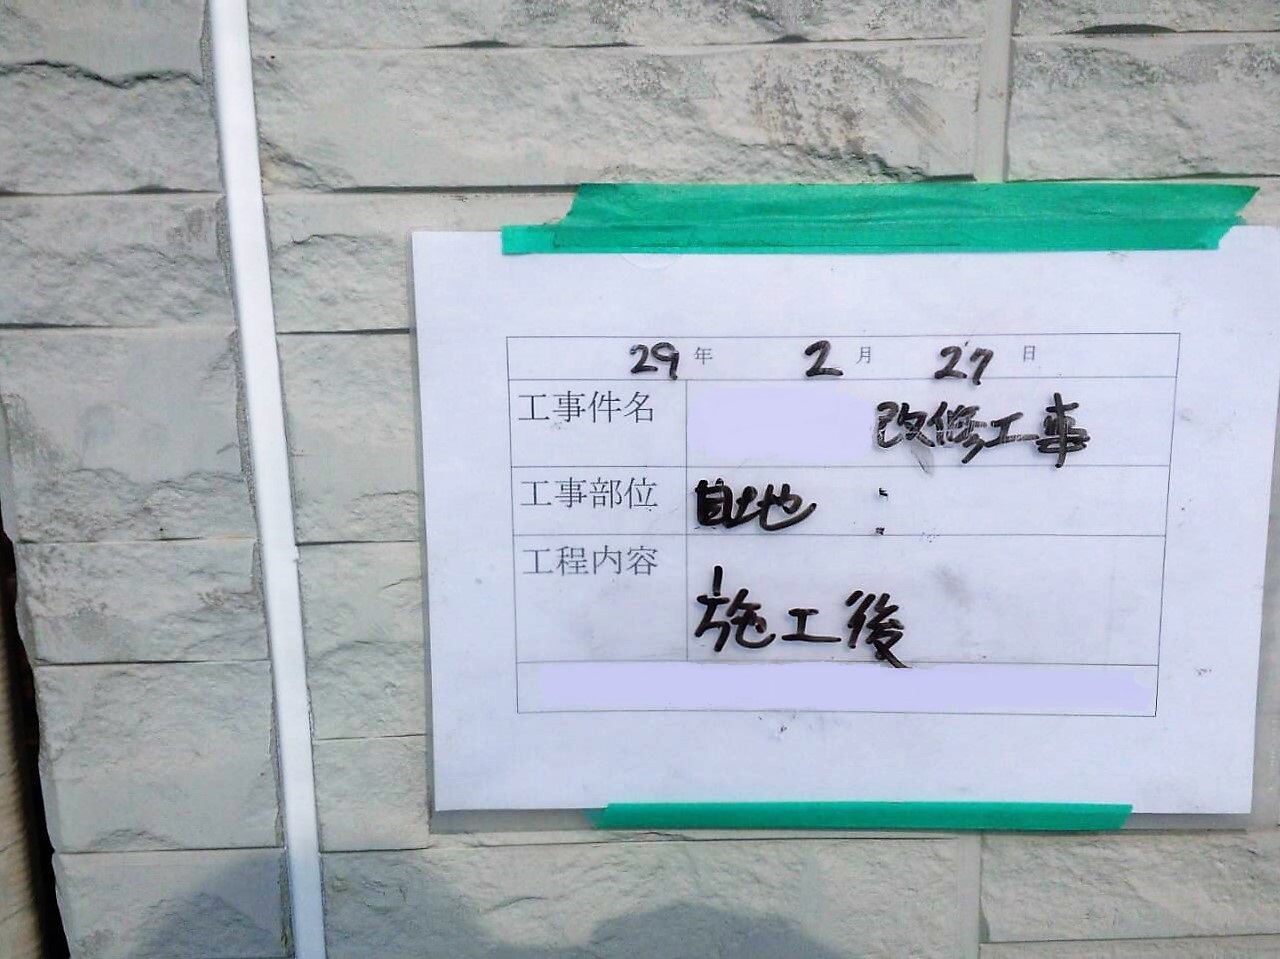 29年 2月 27日
工事件名 改修工事
工事部位 目地
工程内容 施工後